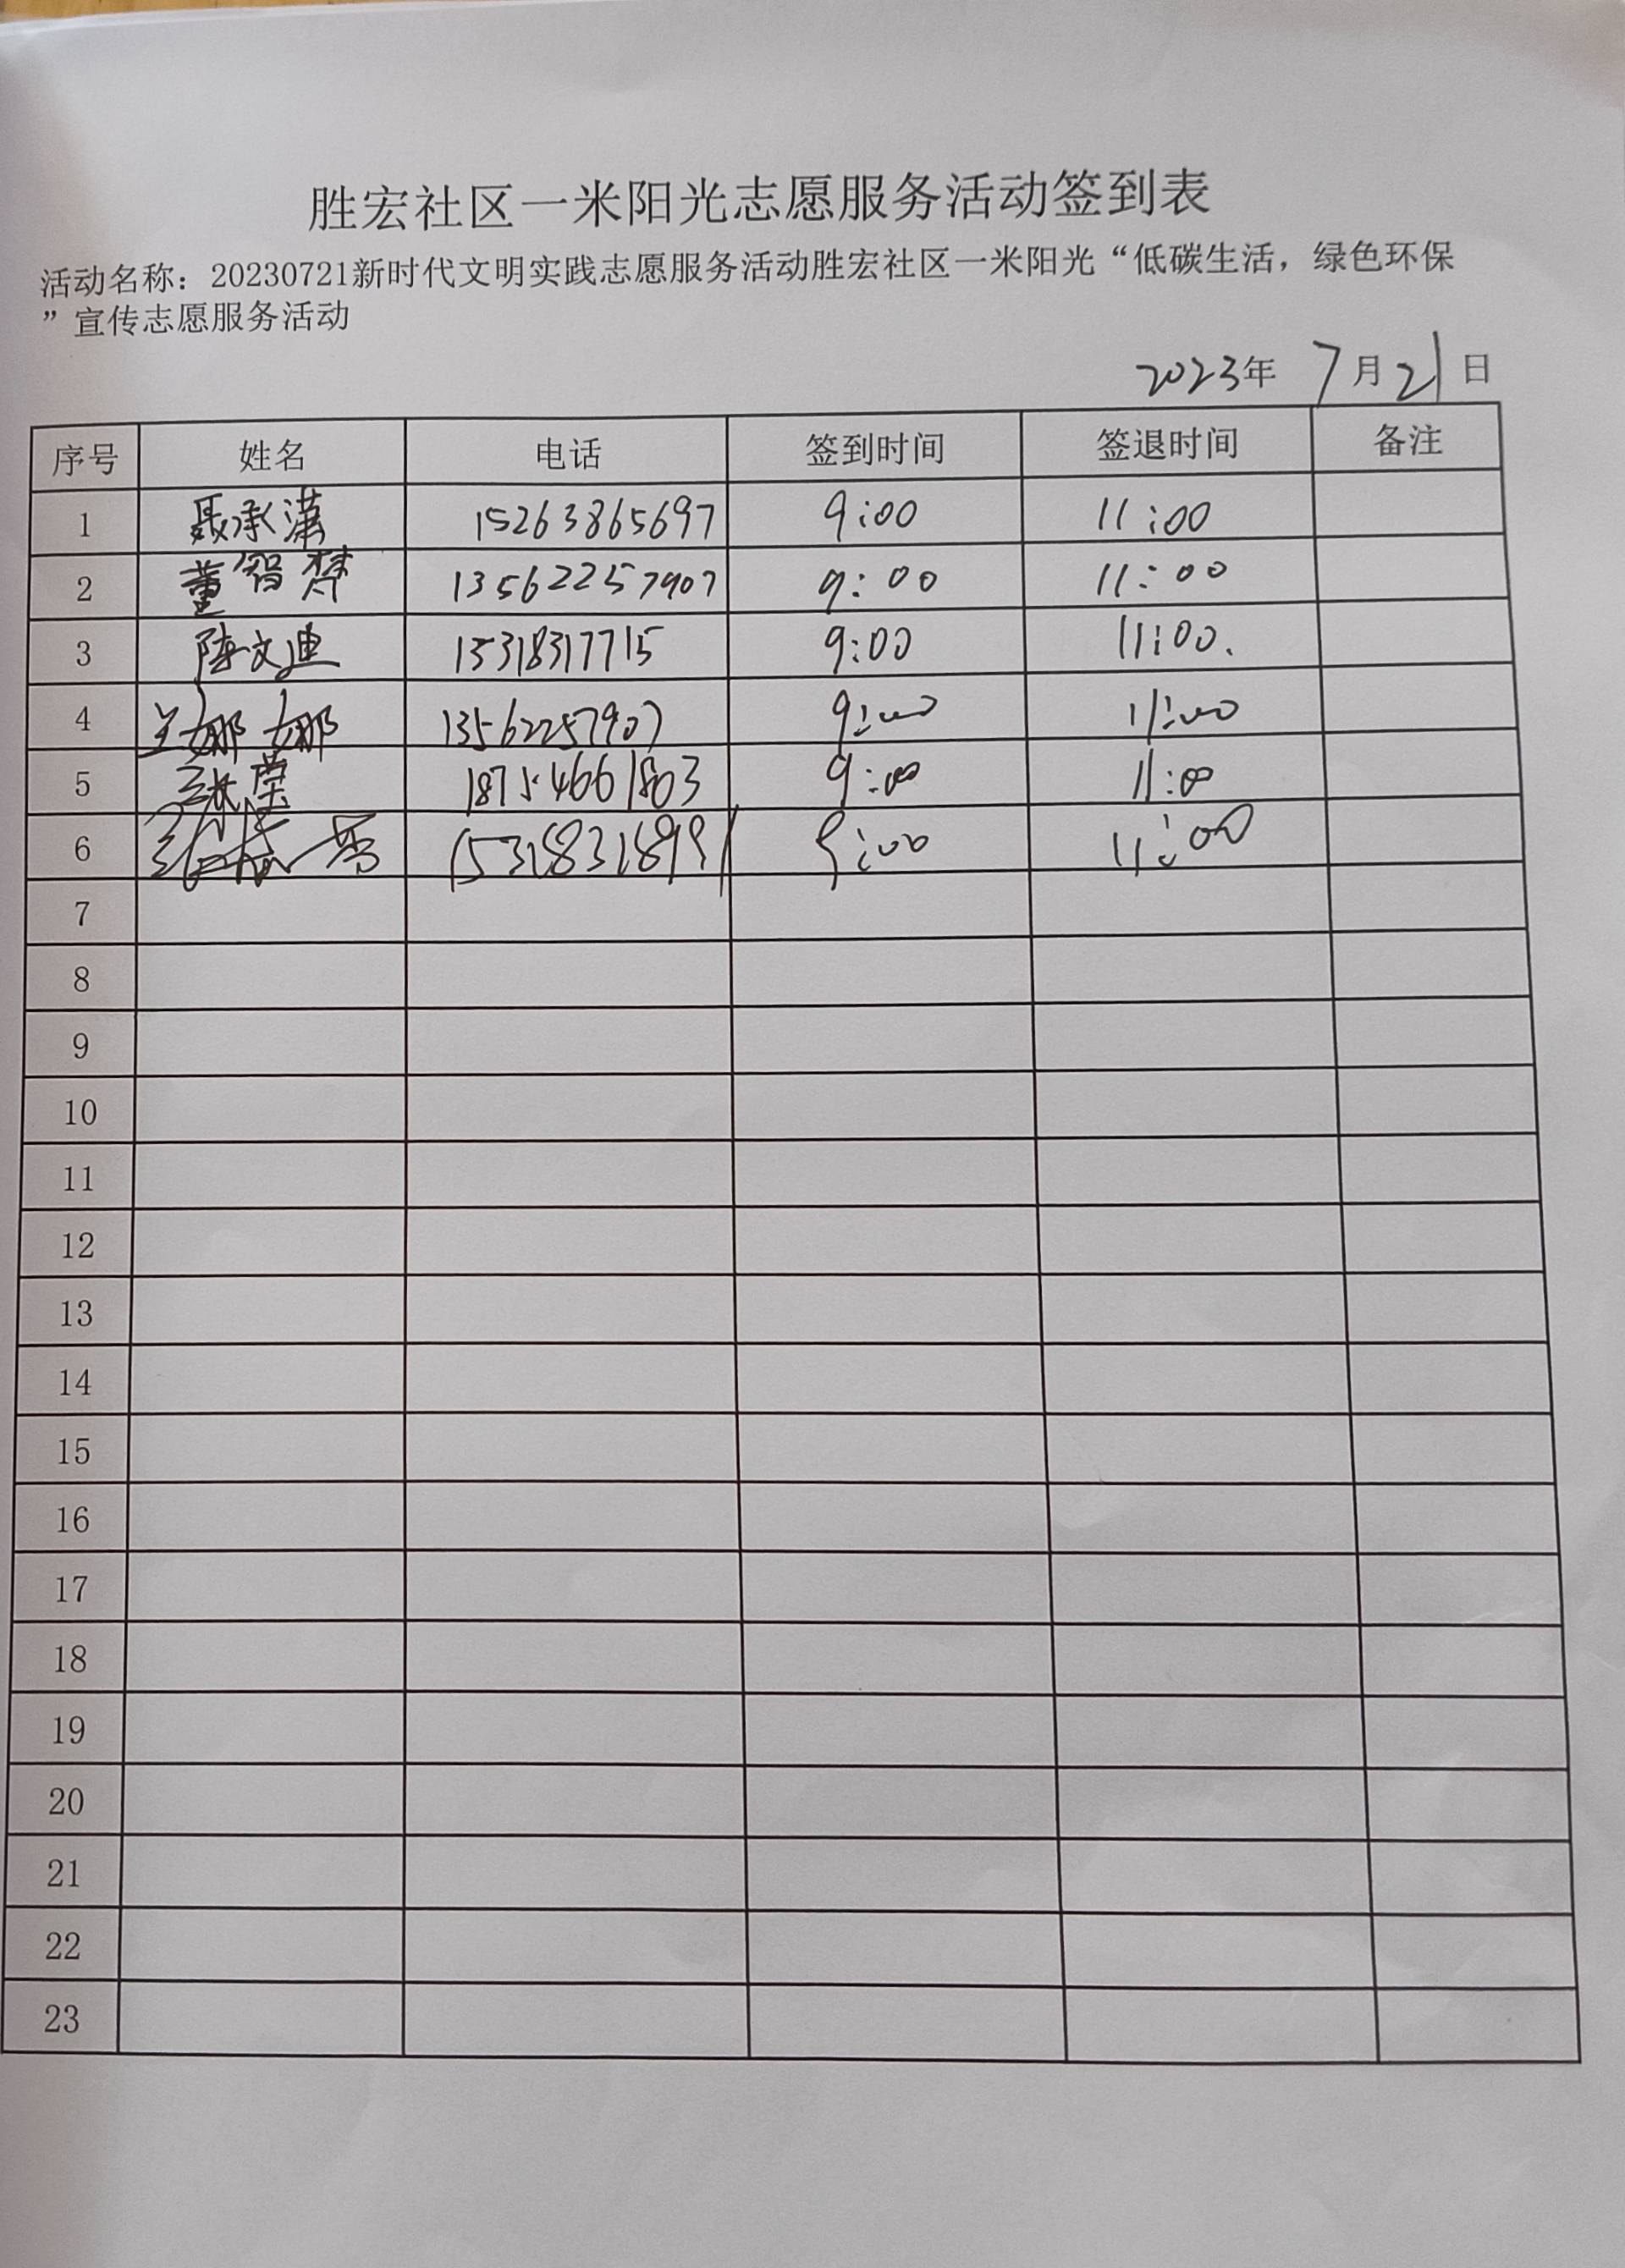 胜宏社区一米阳光志愿服务活动签到表
活动名称：20230721新时代文明实践志愿服务活动胜宏社区一米阳光“低碳生活，绿色环保
”宣传志愿服务活动
2023年 7月21日
序号 姓名 电话 签到时间 签退时间 备注
1 聂承潇 15263865697 9:00 11:00
2 董智梦 13562257907 9:00 11:00
3 陈文迪 15318317715 9:00 11:00.
4 王娜娜 13562257907 9:00 11:00
5 张莹 18754661803 9:00 11:00
6 15318318991 9:00 11:00
7
8
9
10
11
12
13
14
15
16
17
18
19
20
21
22
23